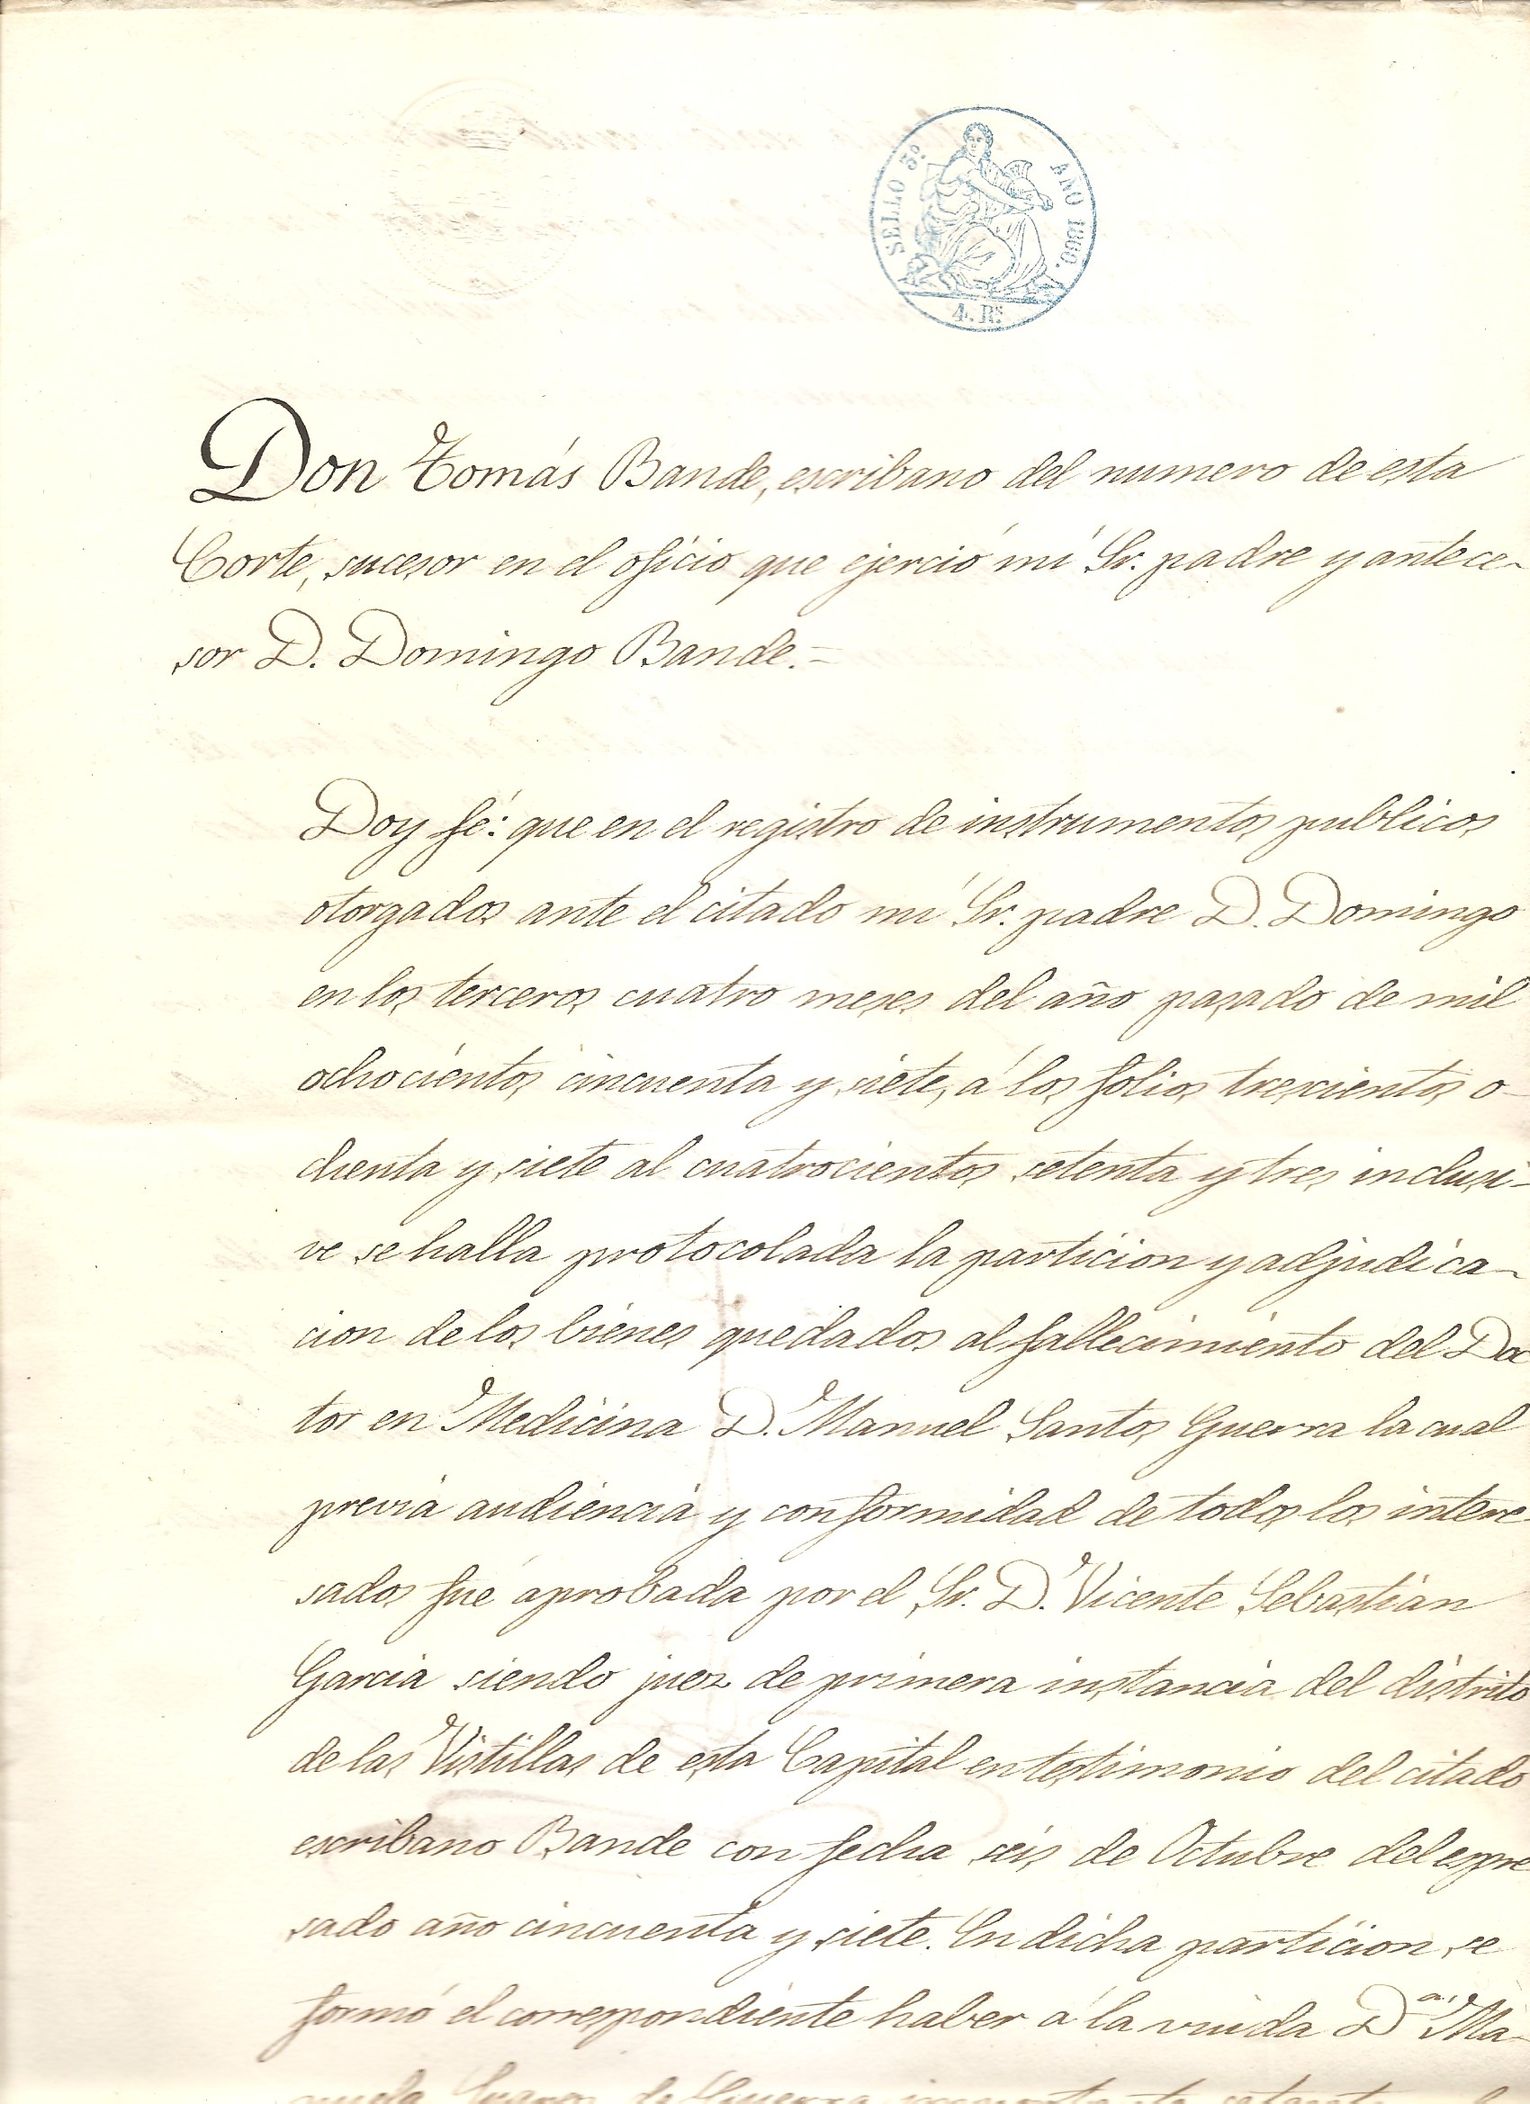 SELLO 3º. AÑO 1860.
4. Rs.
Don Tomás Bande, escribano del numero de esta
Corte, sucesor en el oficio que ejerció mi Sr. padre y antece-
sor D. Domingo Bande.=
Doy fé: que en el registro de instrumentos publicos
otorgados ante el citado mi Sr. padre D. Domingo
en los terceros cuatro meses del año pasado de mil
ochocientos cincuenta y siete, á los folios trescientos o-
chenta y siete al cuatrocientos setenta y tres inclusi-
ve se halla protocolada la particion y adjudica-
cion de los bienes quedados al fallecimiento del Doc
tor en Medicina D. Manuel Santos Guerra la cual
previa audiencia y conformidad de todos los intere-
sados fué aprobada por el Sr. D. Vicente Sebastian
Garcia siendo juez de primera instancia del distrito
de las Vistillas de esta Capital en testimonio del citado
escribano Bande con fecha seis de Octubre del espre
sado año cincuenta y siete. En dicha particion se
formó el correspondiente haber á la viuda Dª. Ma-
de Guerra